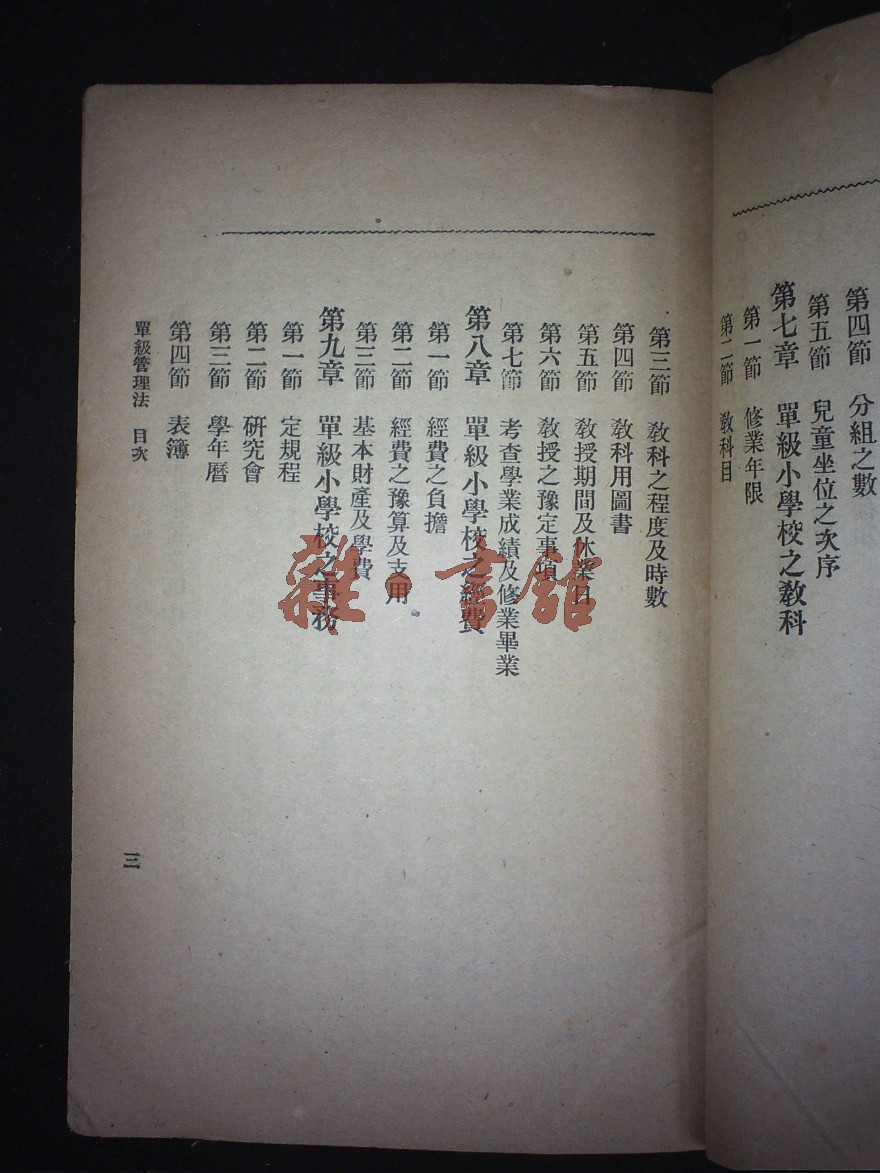 第四節　分組之數
第五節　兒童坐位之次序
第七章　單級小學校之教科
第一節　修業年限
第二節　教科目
第三節　教科之程度及時數
第四節　教科用圖書
第五節　教授期間及休業日
第六節　教授之豫定事項
第七節　考查學業成績及修業畢業
第八章　單級小學校之經費
第一節　經費之負擔
第二節　經費之豫算及支用
第三節　基本財產及學費
第九章　單級小學校之事務
第一節　定規程
第二節　研究會
第三節　學年曆
第四節　表簿
單級管理法　目次
三
雜·書館